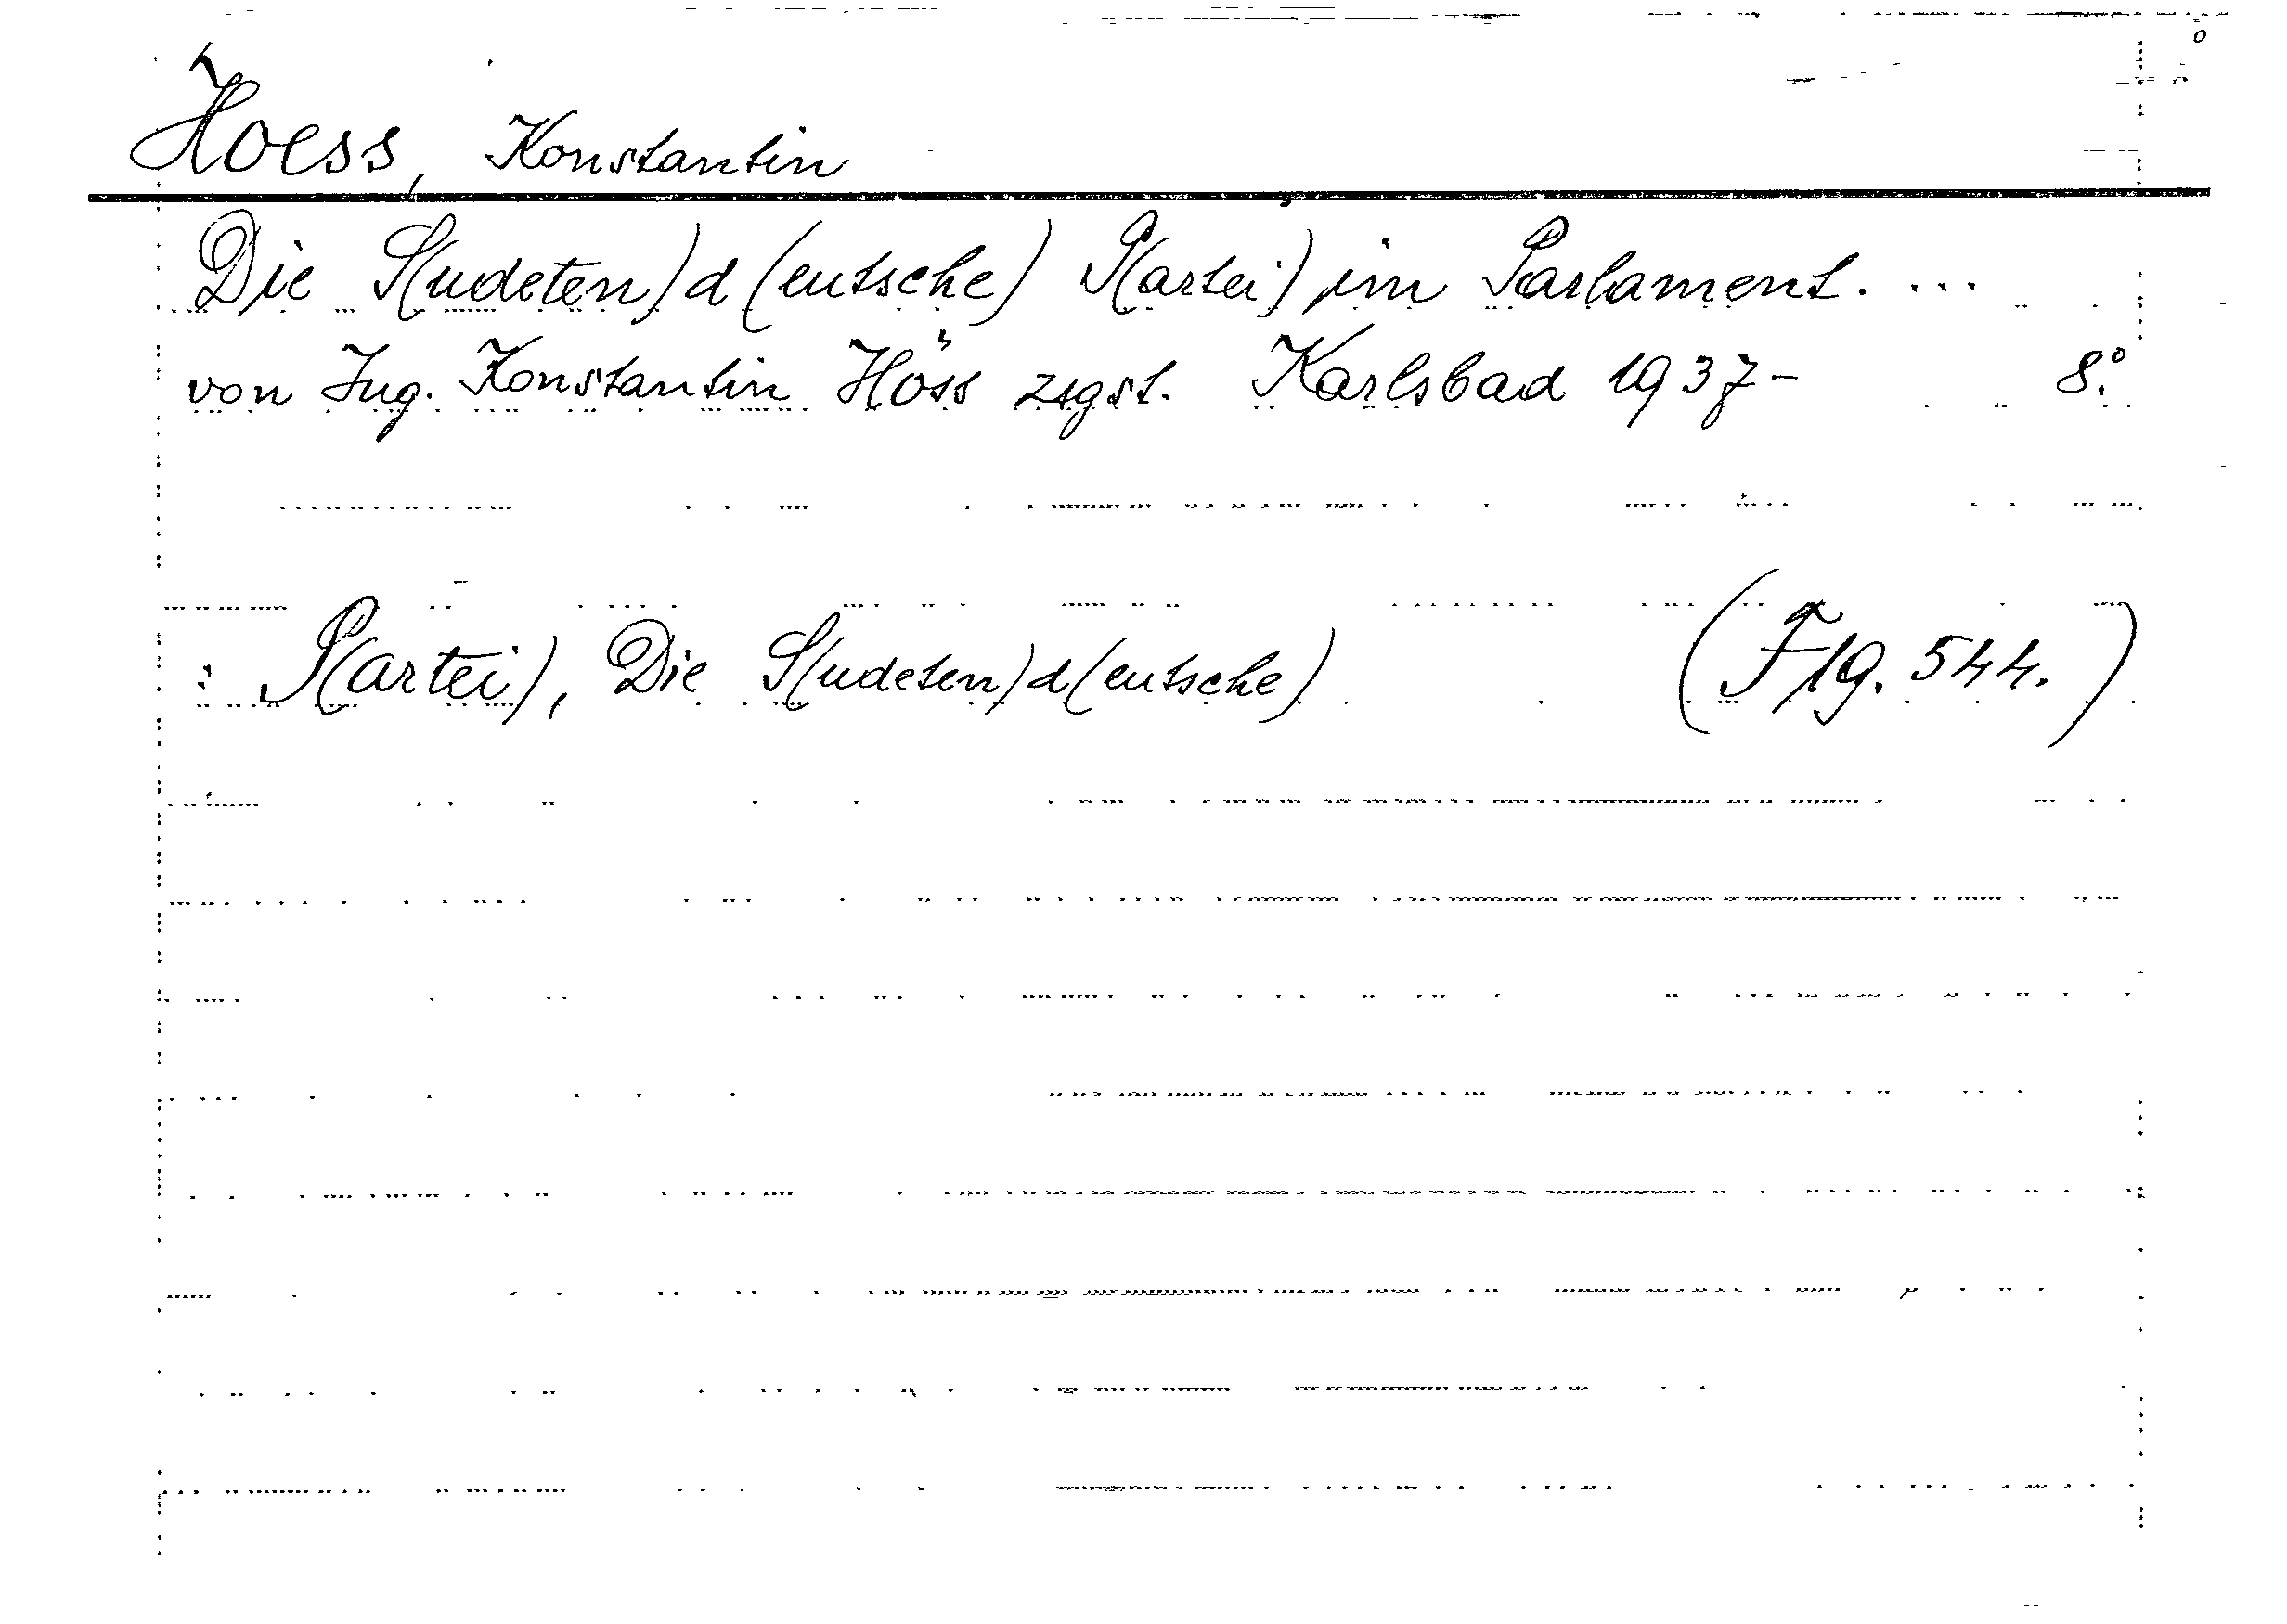 Hoess, Konstantin
Die S(udeten)d(eutsche) P(artei) im Parlament. ...
von Ing. Konstantin Höss zsgst. Karlsbad 1937- 8.°
: P(artei), Die S(udeten)d(eutsche) (Flg. 544.)